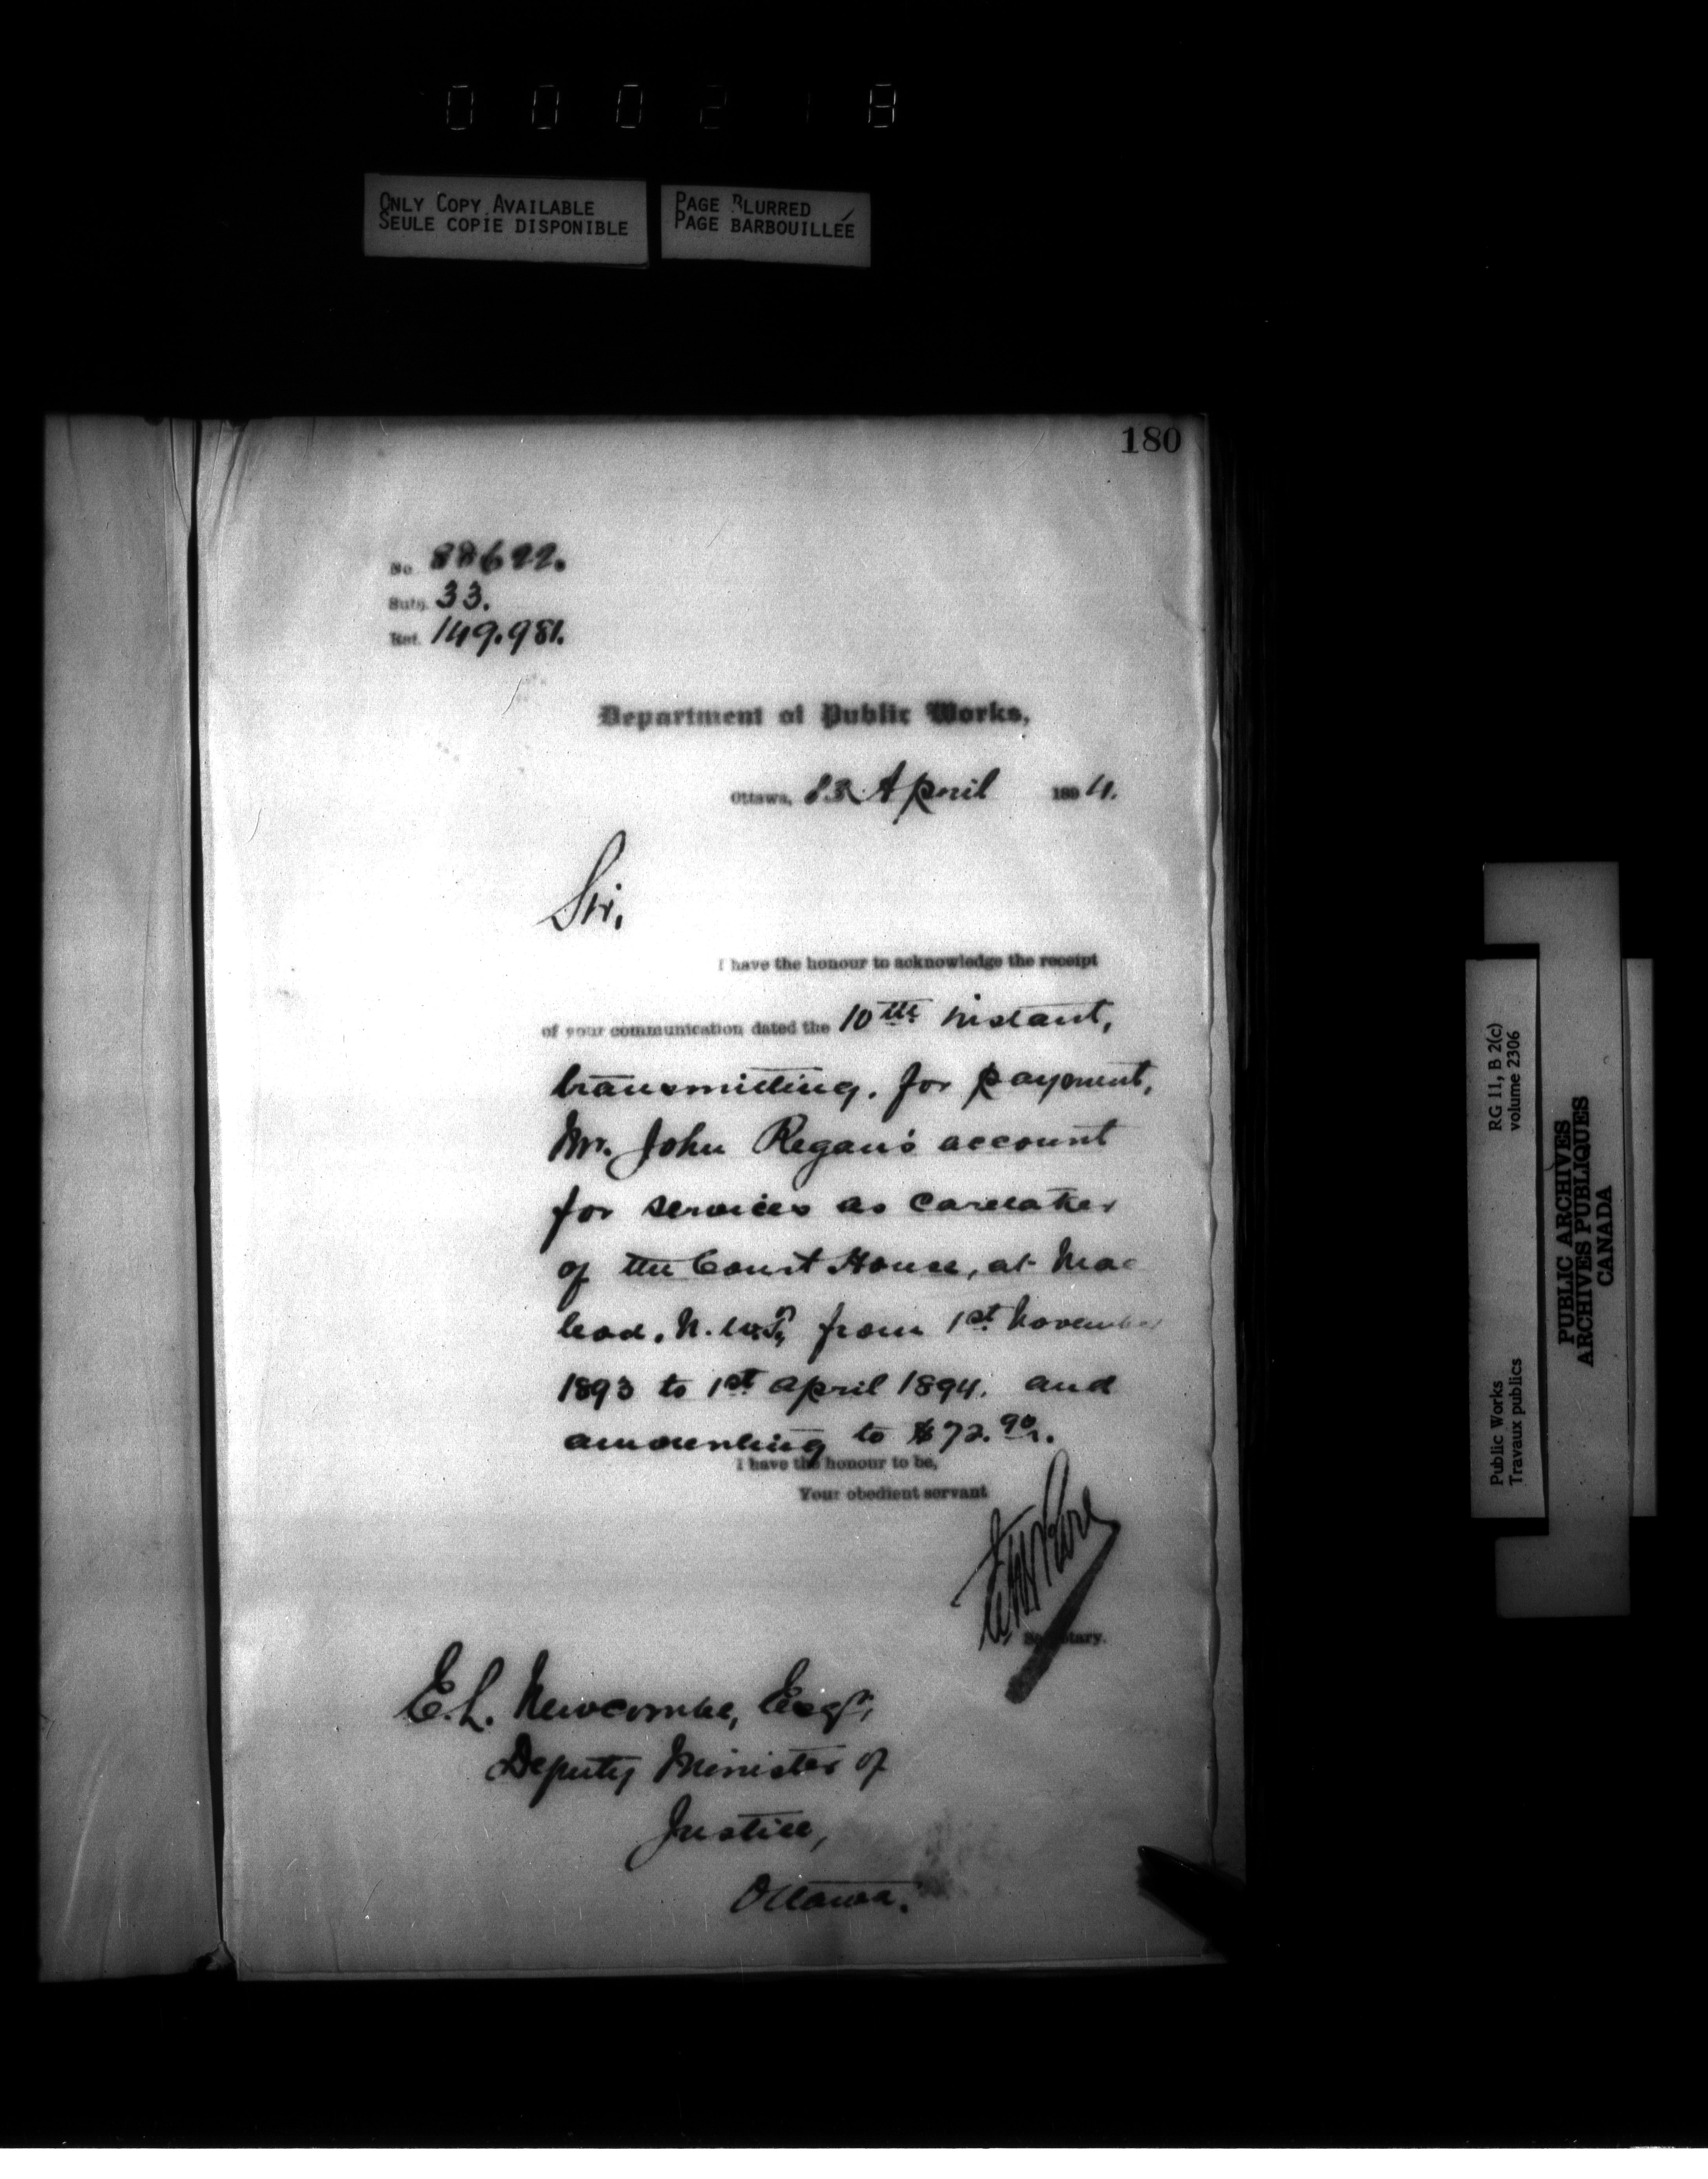 0 0 0 2 1 8
ONLY COPY AVAILABLE
SEULE COPIE DISPONIBLE
PAGE BLURRED
PAGE BARBOUILLÉE
180
No. 88622.
Subj. 33.
Ref. 149.981.
Department of Public Works,
Ottawa, 13 April 1894.
Sir,
I have the honour to acknowledge the receipt
of your communication dated the 10th instant,
transmitting, for payment,
Mr. John Regan's account
for services as caretaker
of the Court House, at Mac
leod, N.W.T., from 1st November
1893 to 1st April 1894, and
amounting to $72.90.
I have the honour to be,
Your obedient servant
Secretary.
E.L. Newcombe, Esqr,
Deputy Minister of
Justice,
Ottawa.
RG 11, B 2(c)
volume 2306
Public Works
Travaux publics
PUBLIC ARCHIVES
ARCHIVES PUBLIQUES
CANADA